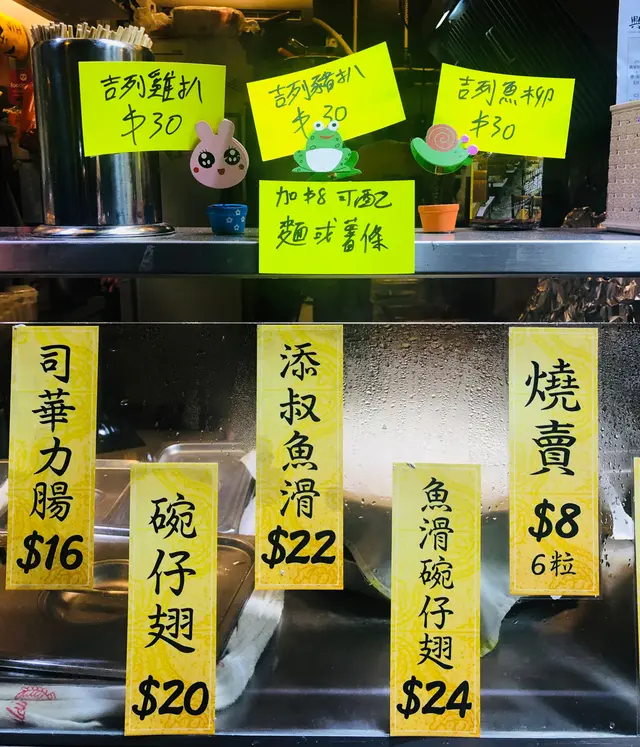 吉列雞扒
$30
吉列豬扒
$30
吉列魚柳
$30
加$8可配
麵或薯條
司華力腸
$16
碗仔翅
$20
添叔魚滑
$22
魚滑碗仔翅
$24
燒賣
$8
6粒